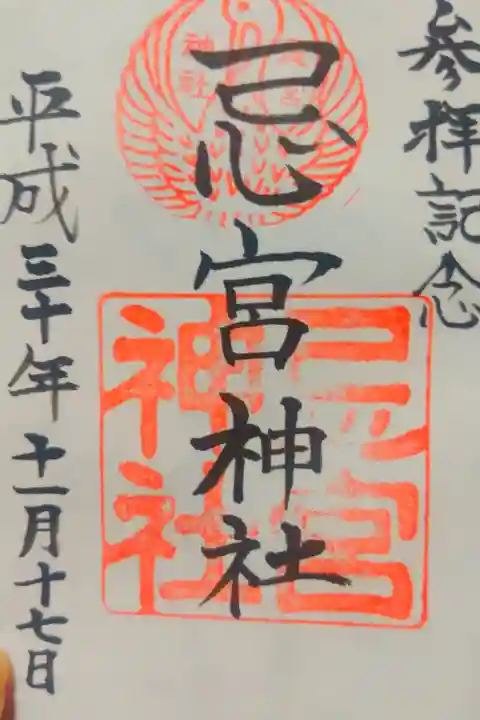 参拝記念
忌宮神社
忌宮
神社
神社
平成三十年十一月十七日